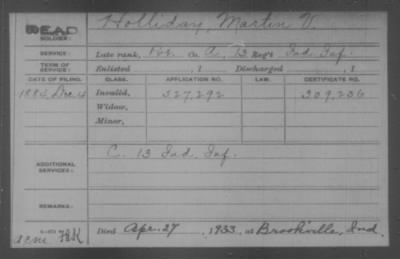 DEAD Holliday, Martin V.
SOLDIER:
SERVICE: Late rank, Pvt. Co. A, 13 Reg't Ind. Inf.
TERM OF SERVICE: Enlisted , 1 Discharged , 1
DATE OF FILING. CLASS. APPLICATION NO. LAW. CERTIFICATE NO.
1884, Dec. Invalid, 527,292 309,236
Widow,
Minor,
ADDITIONAL SERVICES: C. 13 Ind. Inf.
REMARKS:
Died Apr. 27, 1933, at Brookville, Ind.